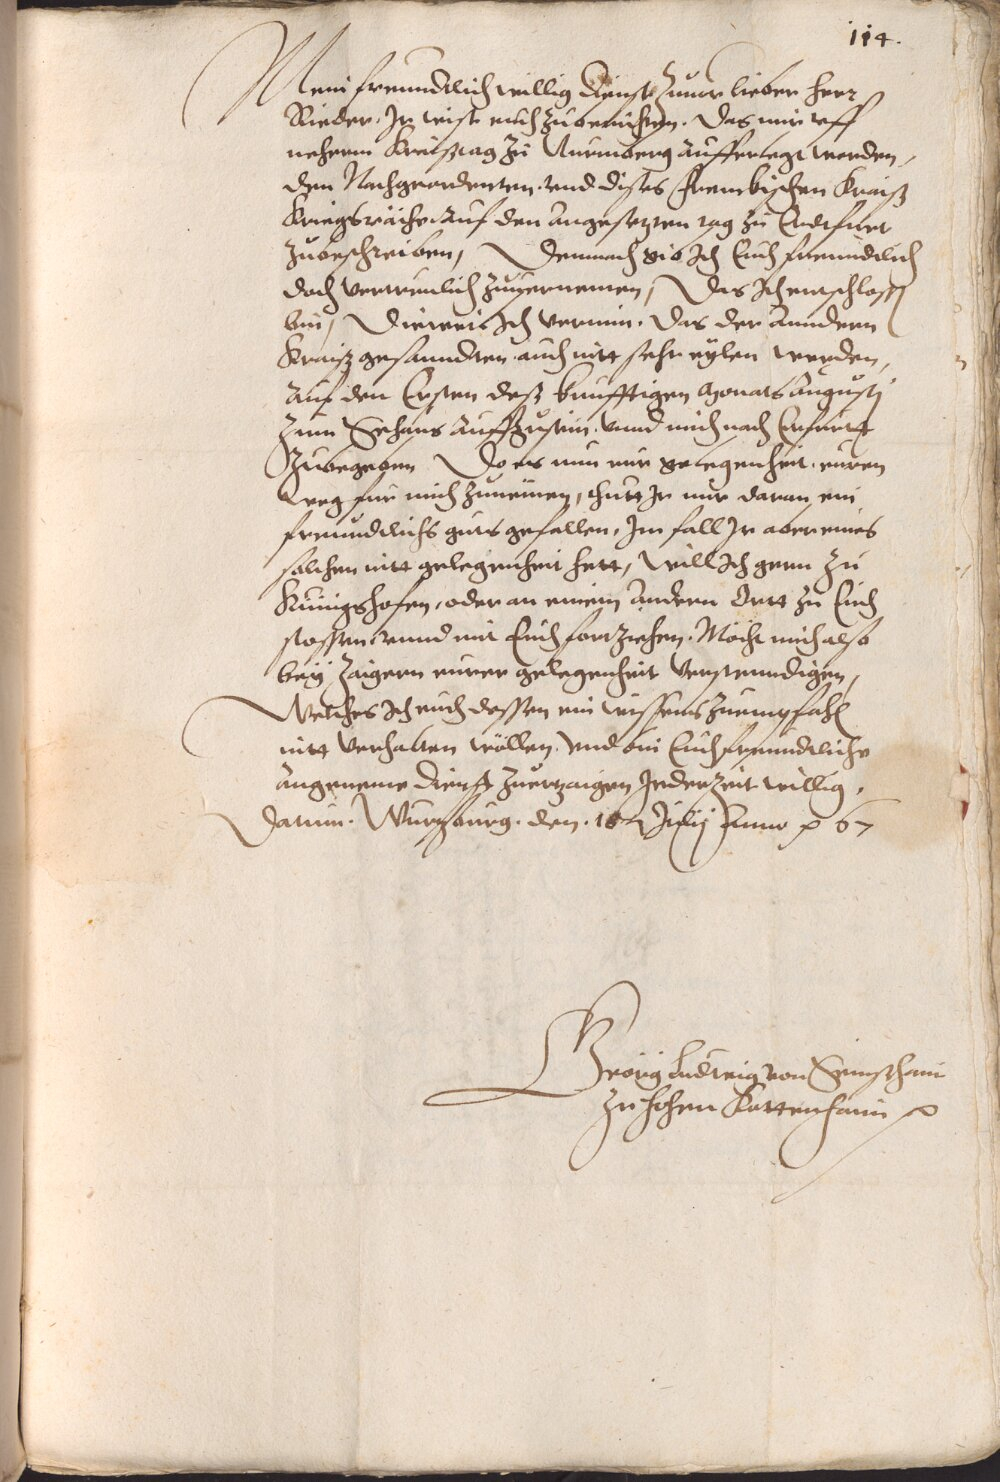 114.
Mein freundtlich willig dienst zuuor lieber herr
Rieder. Ir wist euch zuberichten. das mir uff
neherm Kraißtag zu Nurmberg aufferlegt worden,
den Nachgeordenten. und dises Frenckischen Kraiß
Kriegsräthe. auf den angesetzten tag zu Erdtfurt
zubeschreiben, Demnach gib Ich Euch freundtlich
doch vertreulich zuuernemen, Das Ich entschlossen
bin, Dieweil Ich vermein. das der anndern
Kraiß gesanndten. auch nitt sehr eylen werden,
auf den Ersten deß kunfftigen Monats Augusti
zum auffzusein. unnd mich nach Erfurtt
zubegeben Do es nun eur gelegenheit. euren
weg fur mich zunemen, thutt Ir mir daran ein
freundtlichs guts gefallen, Im fall Ir aber eines
solchen nitt gelegenheit hett, will Ich gern zu
Kunigshofen, oder an einem andern Ortt zu Euch
stossen. unnd mit Euch fortziehen. Möcht mich also
bey Zaigern eurer gelegenheit verstenndigen,
Welches Ich euch dessen ein wissens zuempfahen
nitt verhalten wöllen. und bin Euch freundtliche
angeneme dienst zuertzaigen Jederzeit willig.
Datum. Wurtzburg. den. 18 Julij Anno 67
Georg Ludwig von Seinßheim
zu hohen Kottenheim